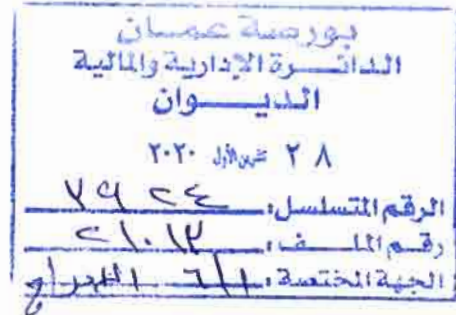 بورصة عمان
الدائرة الإدارية والمالية
الديوان
٢٨ تشرين الأول ٢٠٢٠
الرقم المتسلسل: ٧٩٢٤
رقم الملف:
الجهة المختصة: الإدراج